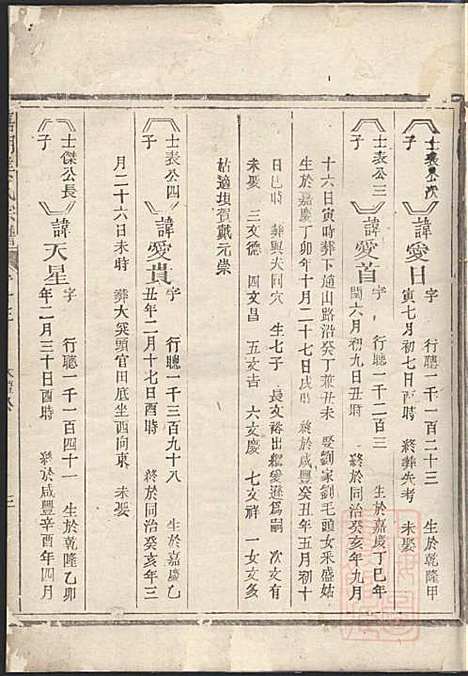 士表公次子
諱愛日
字 行聰一千一百二十三 生於乾隆甲
寅七月初七日酉時 終葬失考 未娶
士表公三子
諱愛首
字 行聰一千二百三 生於嘉慶丁巳年
閏六月初九日丑時 終於同治癸亥年九月
十六日寅時葬下通山路沿癸丁兼丑未 娶劉家劉毛頭女釆盛姑
生於嘉慶丁卯年十月二十七日戌時 終於癸丑年五月初十
日巳時 葬與夫同穴 生七子 長文裕出繼愛遜爲嗣 次文有
未娶 三文德 四文昌 五文吉 六文慶 七文祥 一女文多
姑適垻賀戴元崇
士表公四子
諱愛貴
字 行聰一千三百九十八 生於嘉慶乙
丑年二月十七日酉時 終於同治癸亥年三
月二十六日未時 葬大梁頭官田底坐西向東 未娶
士傑公長子
諱天星
字 行聰一千一百四十一 生於乾隆乙卯
年二月三十日酉時 終於咸豐辛酉年四月